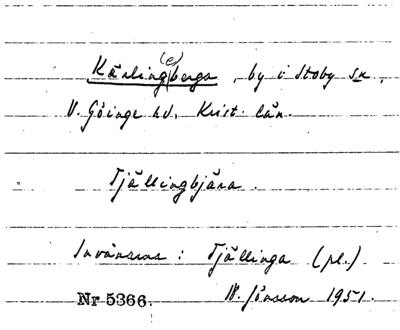 Kärling(e)berga, by i Stoby sn,
V. Göinge hd, Krist. län.
Tjällingbjära.
Invånarna : Tjällinga (pl.)
Nr 5366. W. Jönsson 1951.